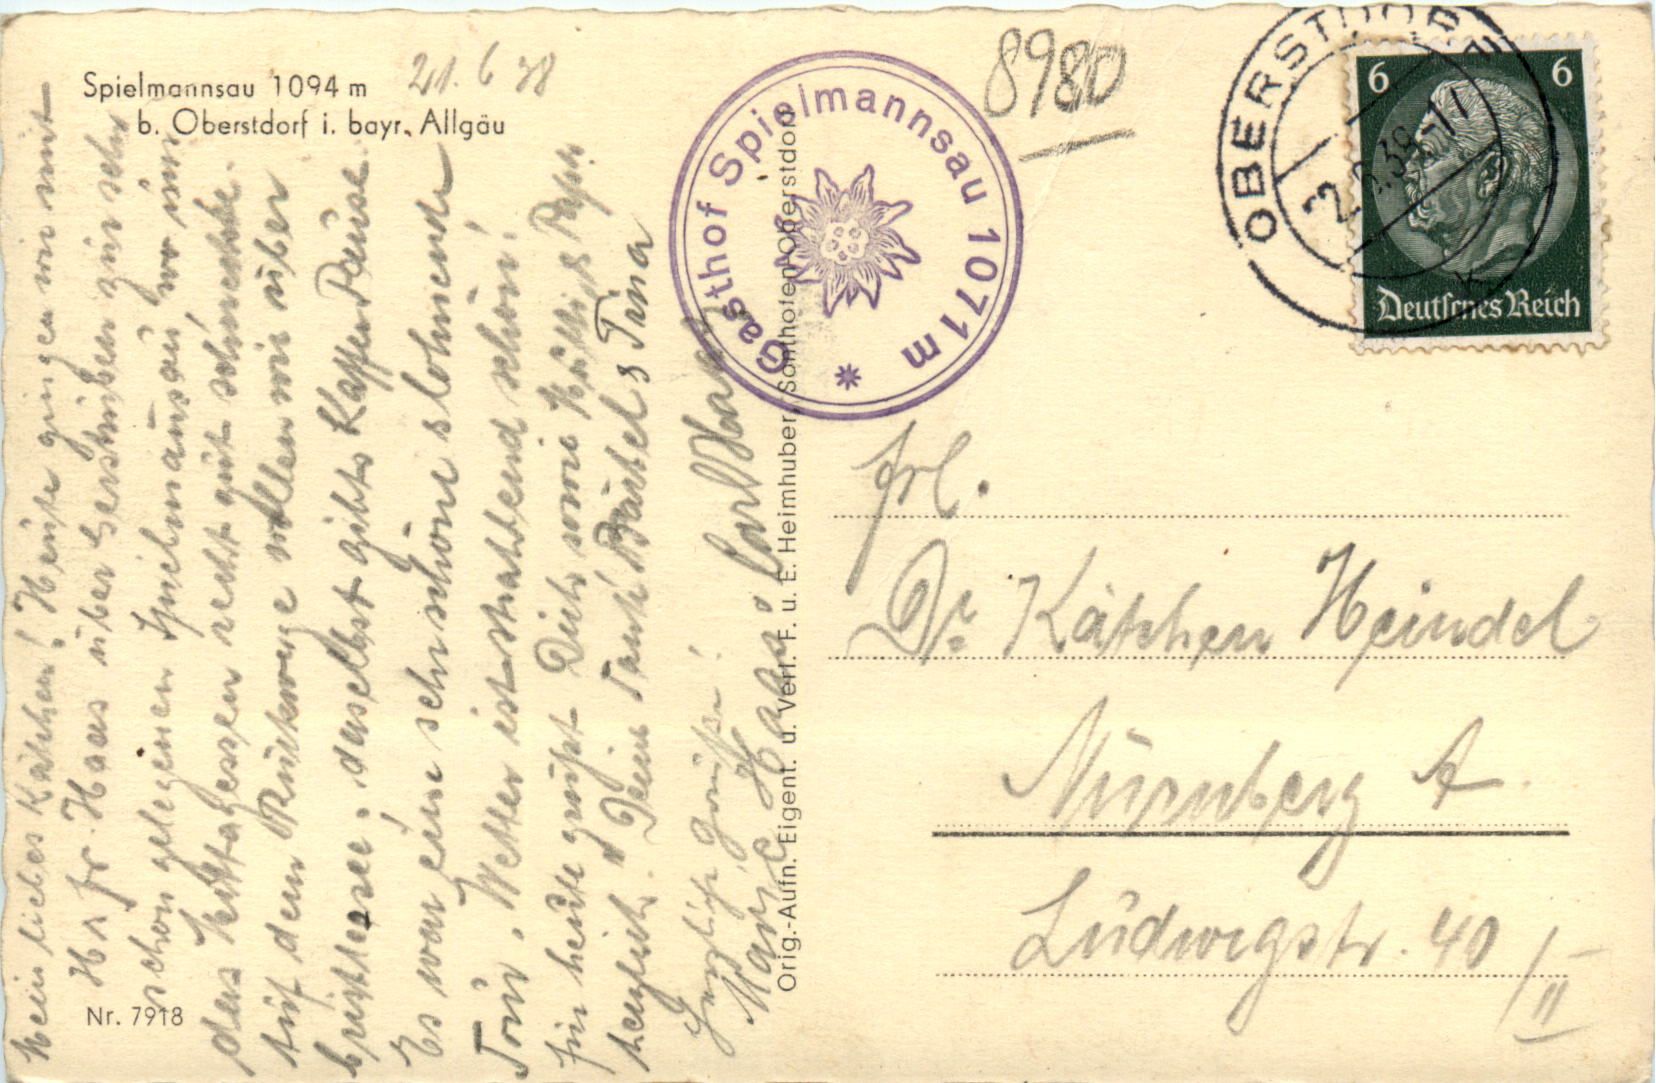 Spielmannsau 1094 m
b. Oberstdorf i. bayr. Allgäu
21. 6 38
8980
Gasthof Spielmannsau 1071 m
OBERSTDORF
6 6
Deutsches Reich
Mein liebes Käthchen! Heute gingen wir mit
H. u. Fr. Haas über Gerstruben zur sehr
schön gelegenen Spielmannsau wo im
das Mittagessen recht gut schmeckte.
Auf dem Rückwege wollen wir über
daselbst gibts Kaffee Pause.
Es war eine sehr schöne lohnende
Tour. Wetter ist strahlend schön!
für heute grüßt Dich sowie
herzlich. Dein Tante
Herzliche Grüße!
Marie Haas. Carl Haas
Orig.-Aufn. Eigent. u. Verl. F. u. E. Heimhuber, Sonthofen/Oberstdorf
Nr. 7918
Frl.
Dr. Käthchen Heindel
Nürnberg A.
Ludwigstr. 40/II